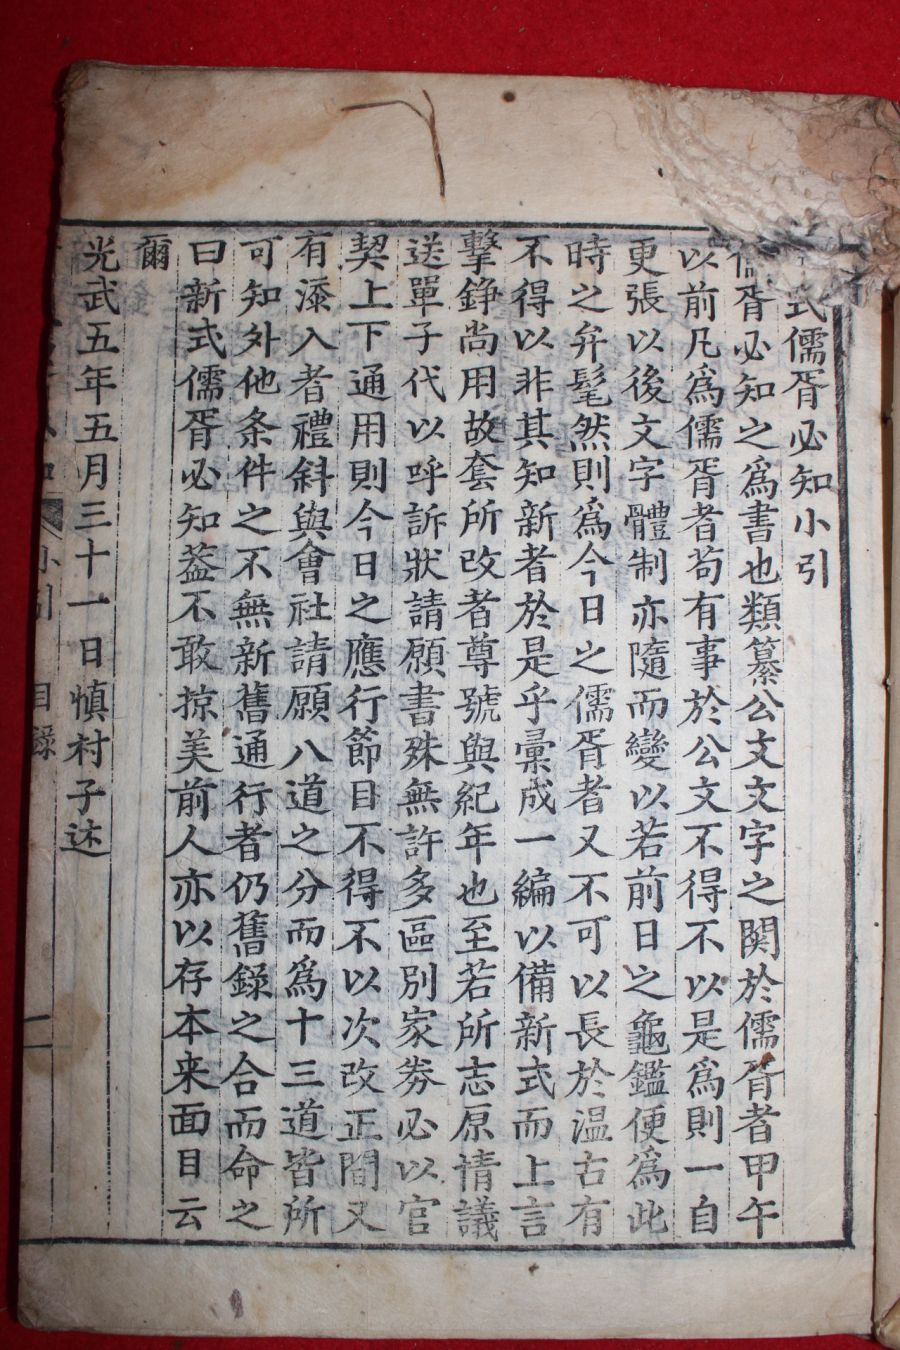 式儒胥必知小引
儒胥必知之爲書也類纂公文文字之関於儒胥者甲午
以前凡爲儒胥者苟有事於公文不得不以是爲則一自
更張以後文字體制亦隨而變以若前日之龜鑑便爲此
時之弁髦然則爲今日之儒胥者又不可以長於温古有
不得以非其知新者於是乎彙成一編以備新式而上言
擊錚尚用故套所改者尊號與紀年也至若所志原情議
送單子代以呼訴狀請願書殊無許多區別家券必以官
契上下通用則今日之應行節目不得不以次改正間又
有添入者禮斜與會社請願八道之分而爲十三道皆所
可知外他条件之不無新舊通行者仍舊錄之合而命之
曰新式儒胥必知盖不敢掠美前人亦以存本来面目云
爾
光武五年五月三十一日愼村子述
小引 目錄 一